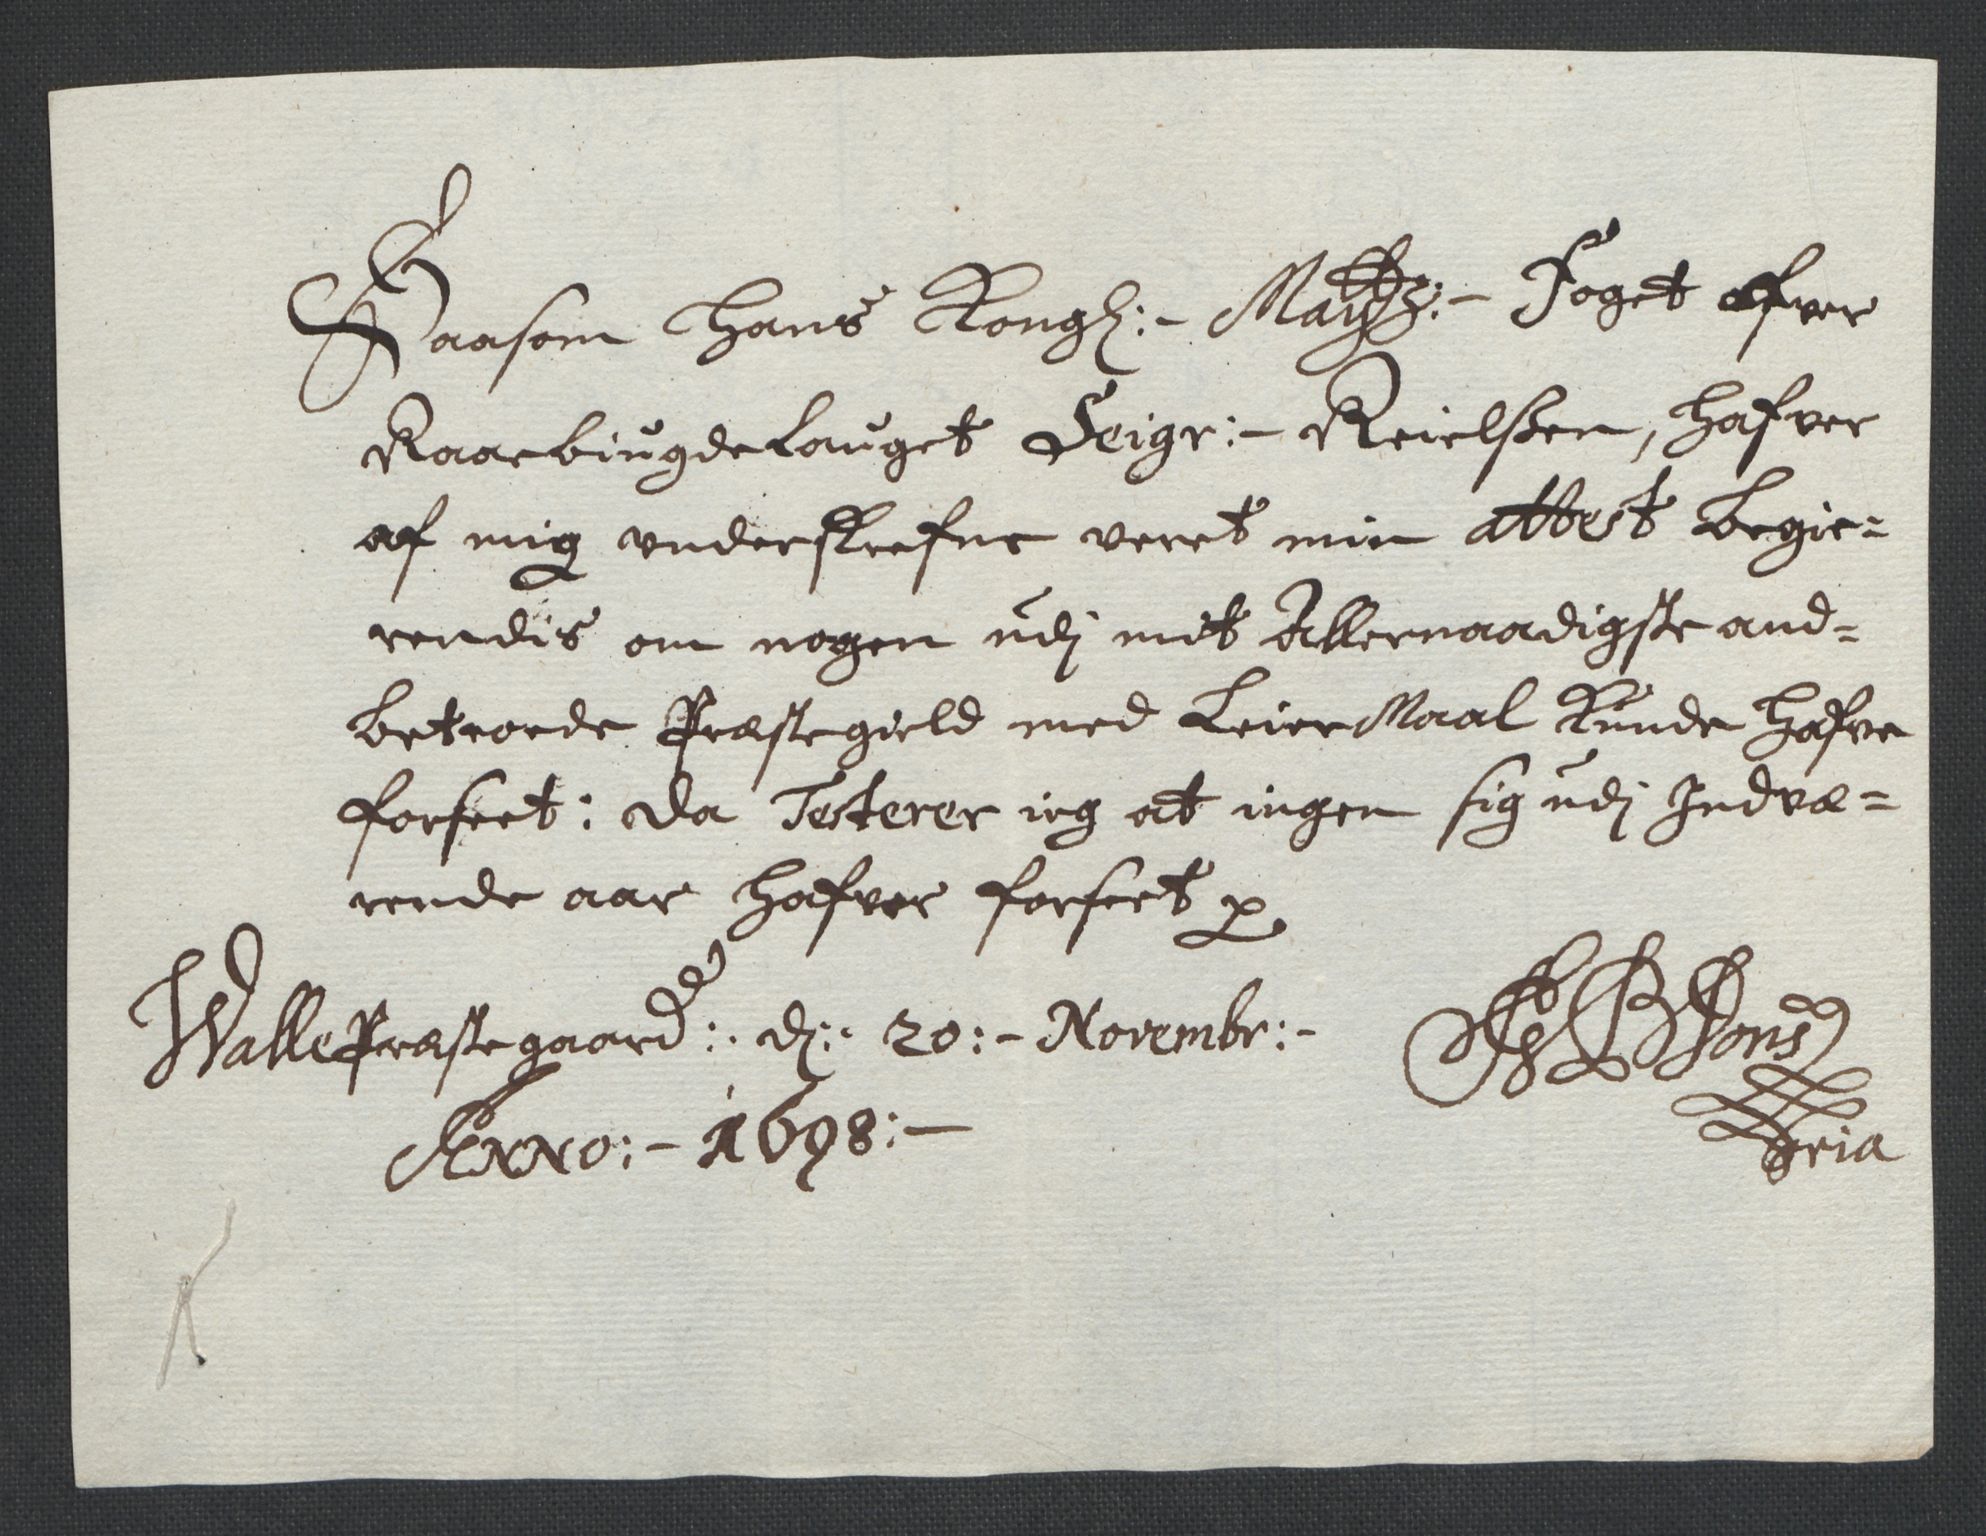 Saasom Hans Kongl:- Maytz:- Foget ofver
Raarbiugdelauget Seigr:- Kiielßen, hafver
af mig underskrefne veret min attest begie=
rendis om nogen udj mit Allernaadigste and=
betroede Præstegield med LeierMaal kunde hafve
forseet: da Testerer ieg at ingen sig udj Indvæ=
rende aar hafver forseet
WallePræstegaard: d: 20:- Novembr:-
Anno:- 1698:-